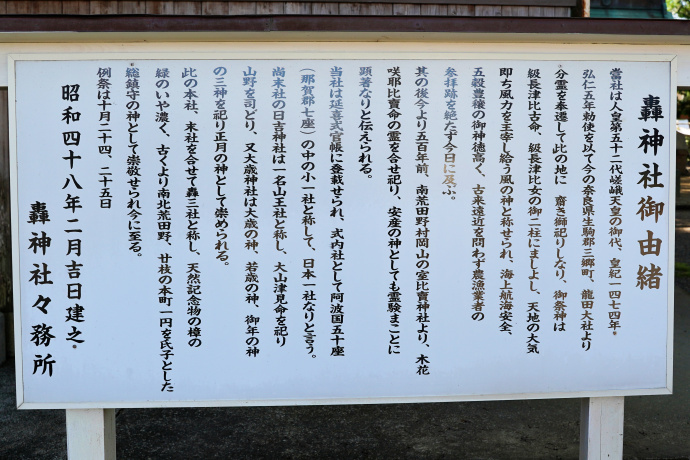 轟神社御由緒
當社は人皇第五十二代嵯峨天皇の御代、皇紀一四七四年
弘仁五年勅使を以て今の奈良県生駒郡三郷町、龍田大社より
分霊を奉遷して此の地に　齋き鎮祀りしなり、御祭神は
級長津比古命、級長津比女の御二柱にましよし、天地の大気
即ち風力を主宰し給う風の神と称せられ、海上航海安全、
五穀豊穣の御神徳高く、古来遠近を問わず農漁業者の
参拝跡を絶たず今日に及ぶ。
其の後今より五百年前、南荒田野村岡山の室比賣神社より、木花
咲耶比賣命の霊を合せ祀り、安産の神としても霊験まことに
顕著なりと伝えられる。
当社は延喜式官帳に登載せられ、式内社として阿波国五十座
（那賀郡七座）の中の小一社と称して、日本一社なりと言う。
尚末社の日吉神社は一名山王社と称し、大山津見命を祀り
山野を司どり、又大歳神社は大歳の神、若歳の神、御年の神
の三神を祀り正月の神として崇められる。
此の本社、末社を合せて轟三社と称し、天然記念物の樟の
緑のいや濃く、古くより南北荒田野、廿枝の本町一円を氏子とした
総鎮守の神として崇敬せられ今に至る。
例祭は十月二十四、二十五日
昭和四十八年二月吉日建之
轟神社々務所